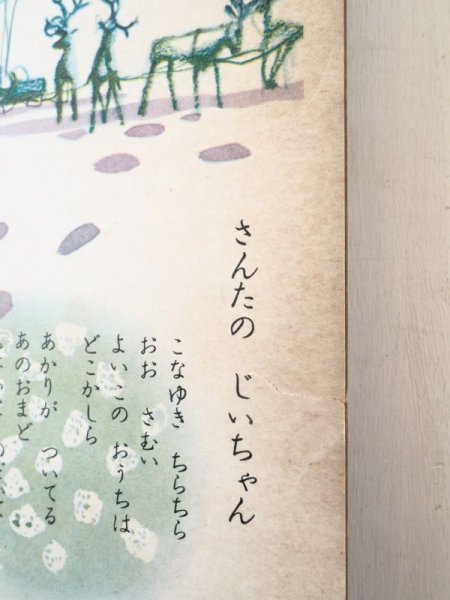 さんたの じいちゃん
こなゆき ちらちら
おお さむい
よいこの おうちは
どこかしら
あかりが ついてる
あのおまど